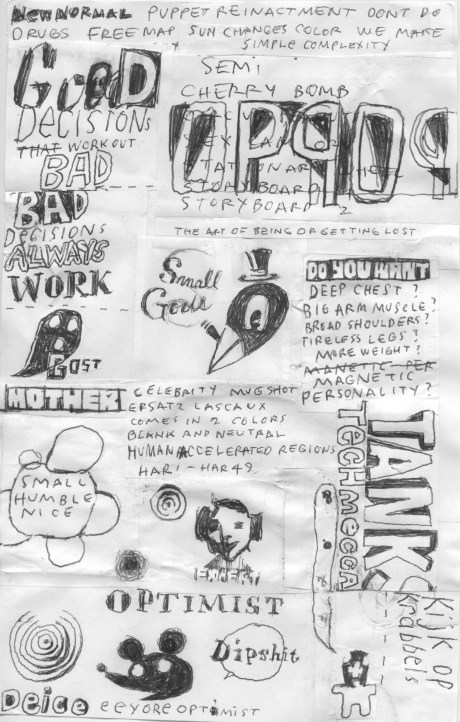 NEW NORMAL PUPPET REINACTMENT DONT DO
DRUGS FREE MAP SUN CHANGES COLOR WE MAKE
SIMPLE COMPLEXITY
GOOD
DECISIONS
THAT WORK OUT
BAD
SEMI
CHERRY BOMB
STORYBOARD
STORYBOARD 2
BAD
DECISIONS
ALWAYS
WORK
THE ART OF BEING OR GETTING LOST
Small
Gods
DO YOU WANT
DEEP CHEST?
BIG ARM MUSCLE?
BROAD SHOULDERS?
TIRELESS LEGS?
MORE WEIGHT?
MANETIC PER
MAGNETIC
PERSONALITY?
GOST
MOTHER
CELEBRITY MUGSHOT
ERSATZ LASCAUX
COMES IN 2 COLORS
BLANK AND NEUTRAL
HUMAN ACCELERATED REGIONS
HAR1 - HAR49
SMALL
HUMBLE
NICE
EXPERT
TANK
TECHMECCA
OPTIMIST
Dipshit
Deice
eeyore optimist
Kijk op
krabbels